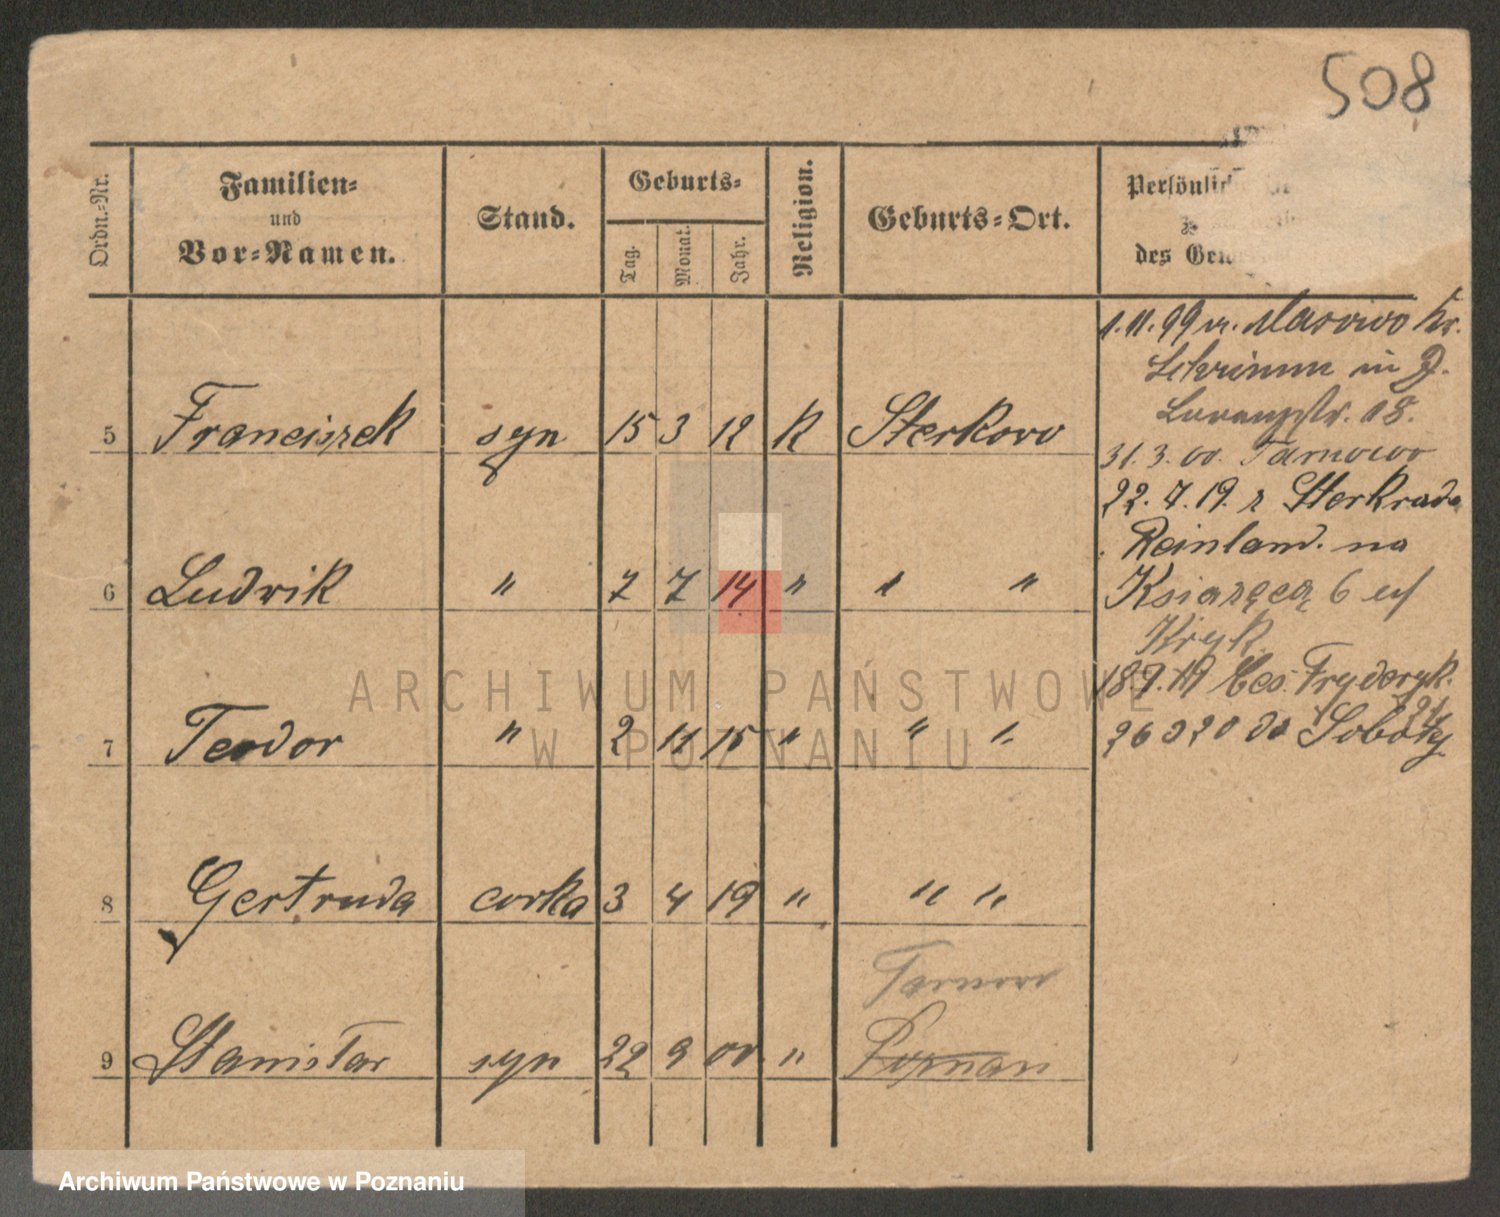 508
Ordn.-Nr.
Familien-
und
Vor-Namen.
Stand.
Geburts-
Tag.
Monat.
Jahr.
Religion.
Geburts-Ort.
Persönli
des Ge
5 Franciszek syn 15 3 12 K Sterkowo
6 Ludwik " 7 7 14 " " "
7 Teodor " 2 11 15 " " "
8 Gertruda corka 3 4 19 " " "
Tarnowo
9 Stanisław syn 22 9 00 " Poznań
1.11.99 v.
Schrimm in J.
18.
31.3.00. Tarnowo
22.7.19. z Sterkrade
Reinland. na
Książęcą 6
Kryk.
18 9.19 Ces. Fryderyk.
21
26 3 20 do Soboty
ARCHIWUM PAŃSTWOWE
W POZNANIU
Archiwum Państwowe w Poznaniu